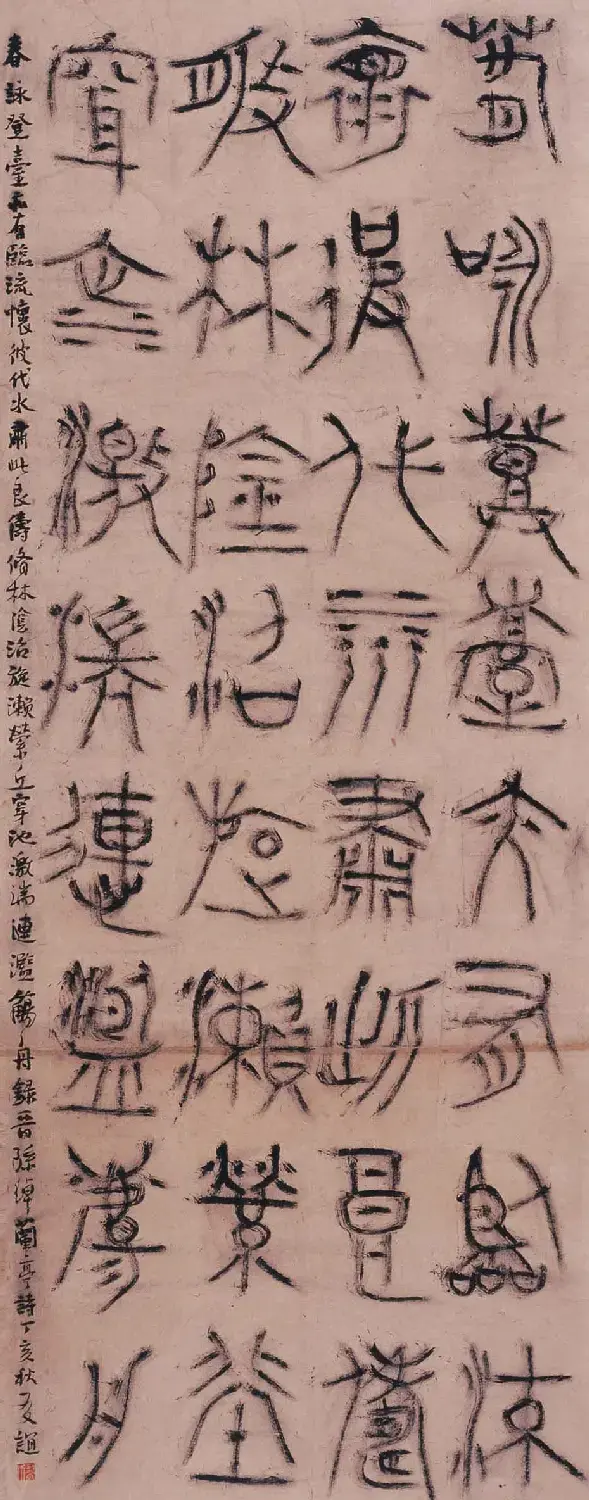 春詠登臺亦有臨流
懷彼代水肅此良儔
脩林陰沼旋瀨縈丘
穿池激湍連濫觴舟
春詠登臺亦有臨流懷彼代水肅此良儔脩林陰沼旋瀨縈丘穿池激湍連濫觴舟錄晉孫綽蘭亭詩丁亥秋誼